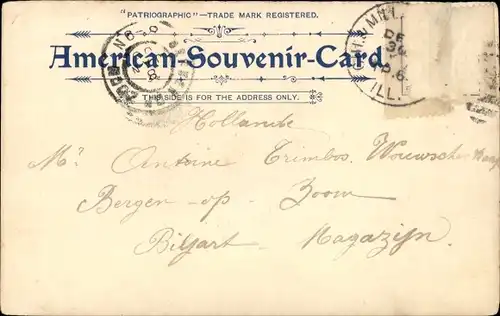 "PATRIOGRAPHIC"—TRADE MARK REGISTERED.
American-Souvenir-Card.
THIS SIDE IS FOR THE ADDRESS ONLY.
DE
30
ILL.
Hollande
Mr. Antoine Trimbos. Wouwsche
Bergen-op-Zoom
Biljart-Magazijn.